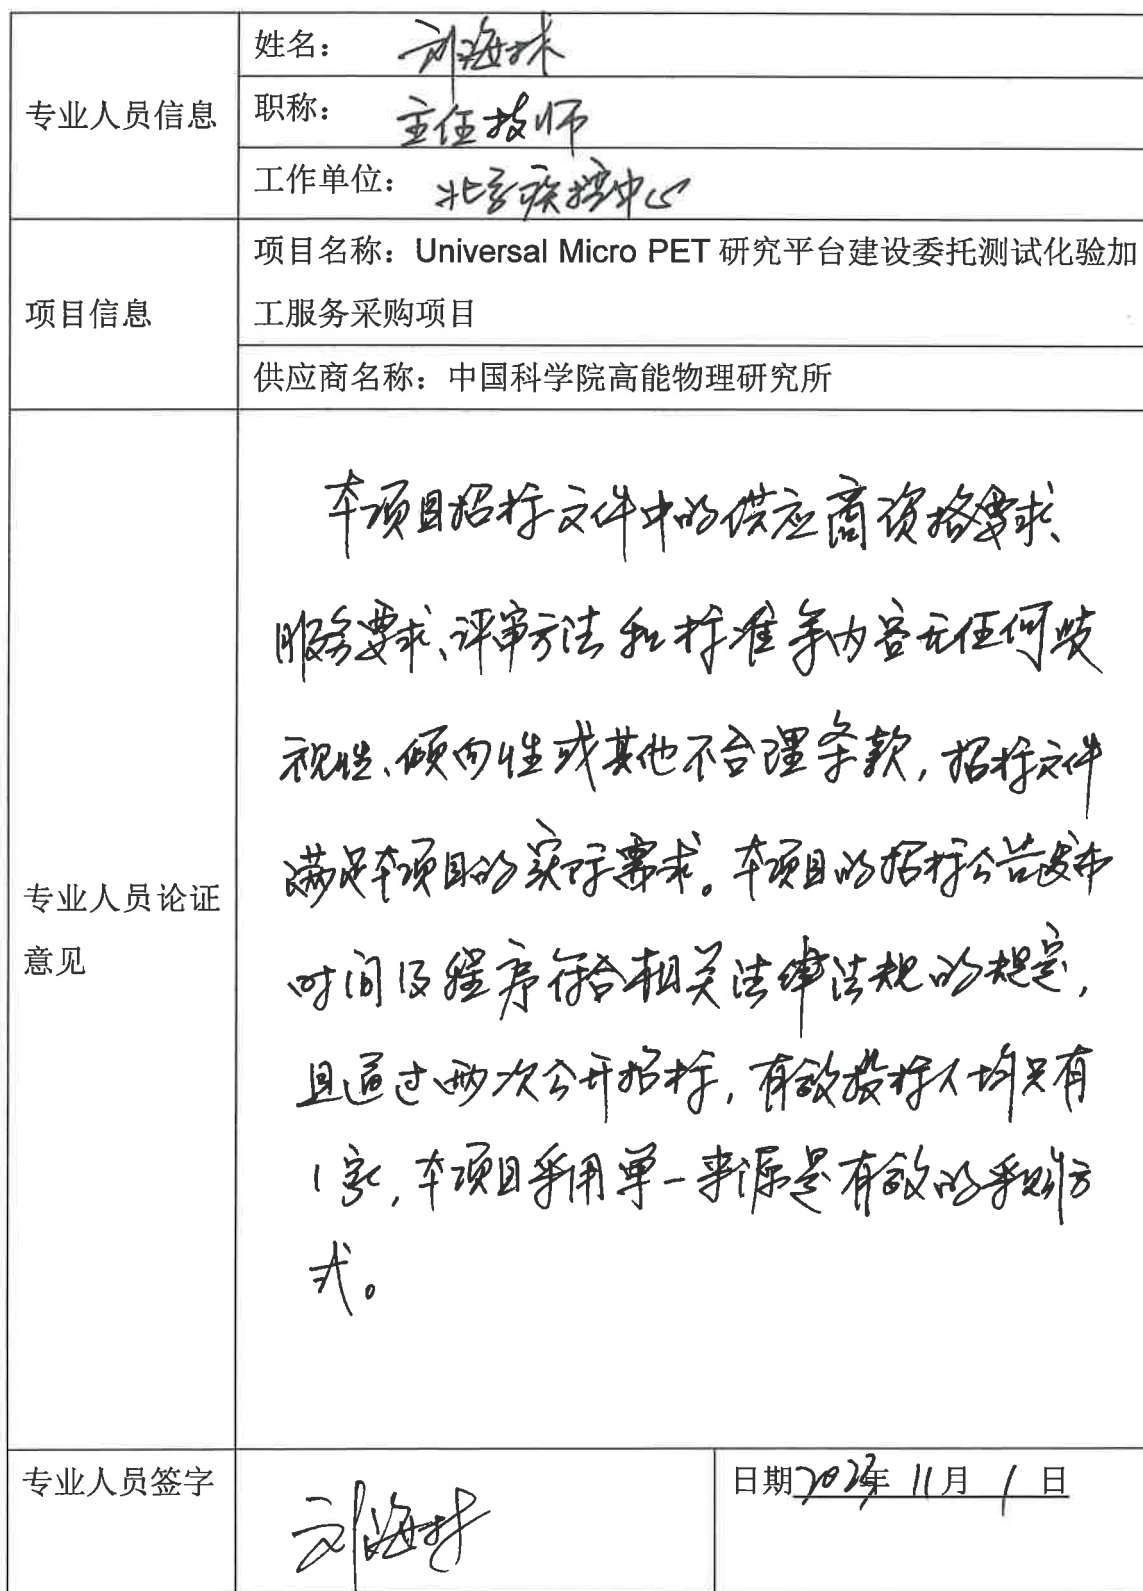 姓名：刘海林
专业人员信息
职称：主任技师
工作单位：北京疾控中心
项目名称：Universal Micro PET 研究平台建设委托测试化验加
项目信息
工服务采购项目
供应商名称：中国科学院高能物理研究所
本项目招标文件中的供应商资格要求、
服务要求、评审方法和标准等内容无任何歧
视性、倾向性或其他不合理条款，招标文件
满足本项目的实际需求。本项目的招标公告发布
专业人员论证
意见
时间及程序符合相关法律法规的规定，
且通过两次公开招标，有效投标人均只有
1家，本项目采用单一来源是有效的采购方
式。
专业人员签字
刘海林
日期 2023年 11月 1 日